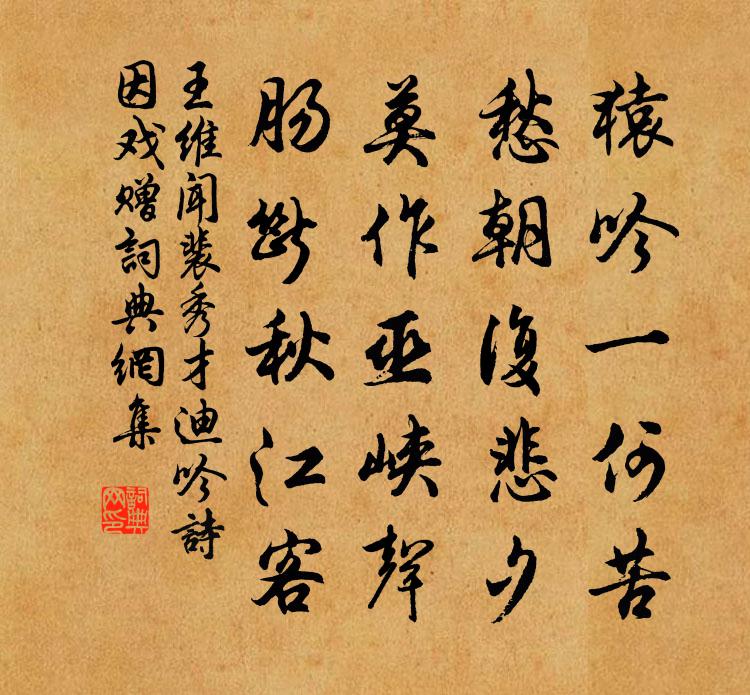 猿吟一何苦
愁朝復悲夕
莫作巫峽聲
腸斷秋江客
王維聞裴秀才迪吟詩
因戏赠詞典網集
詞典
网印